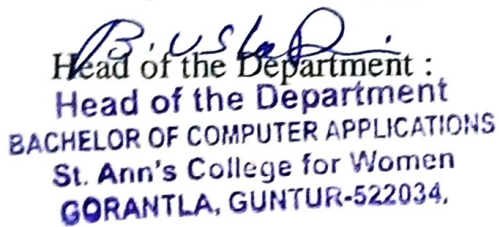 Head of the Department :
Head of the Department
BACHELOR OF COMPUTER APPLICATIONS
St. Ann's College for Women
GORANTLA, GUNTUR-522034.